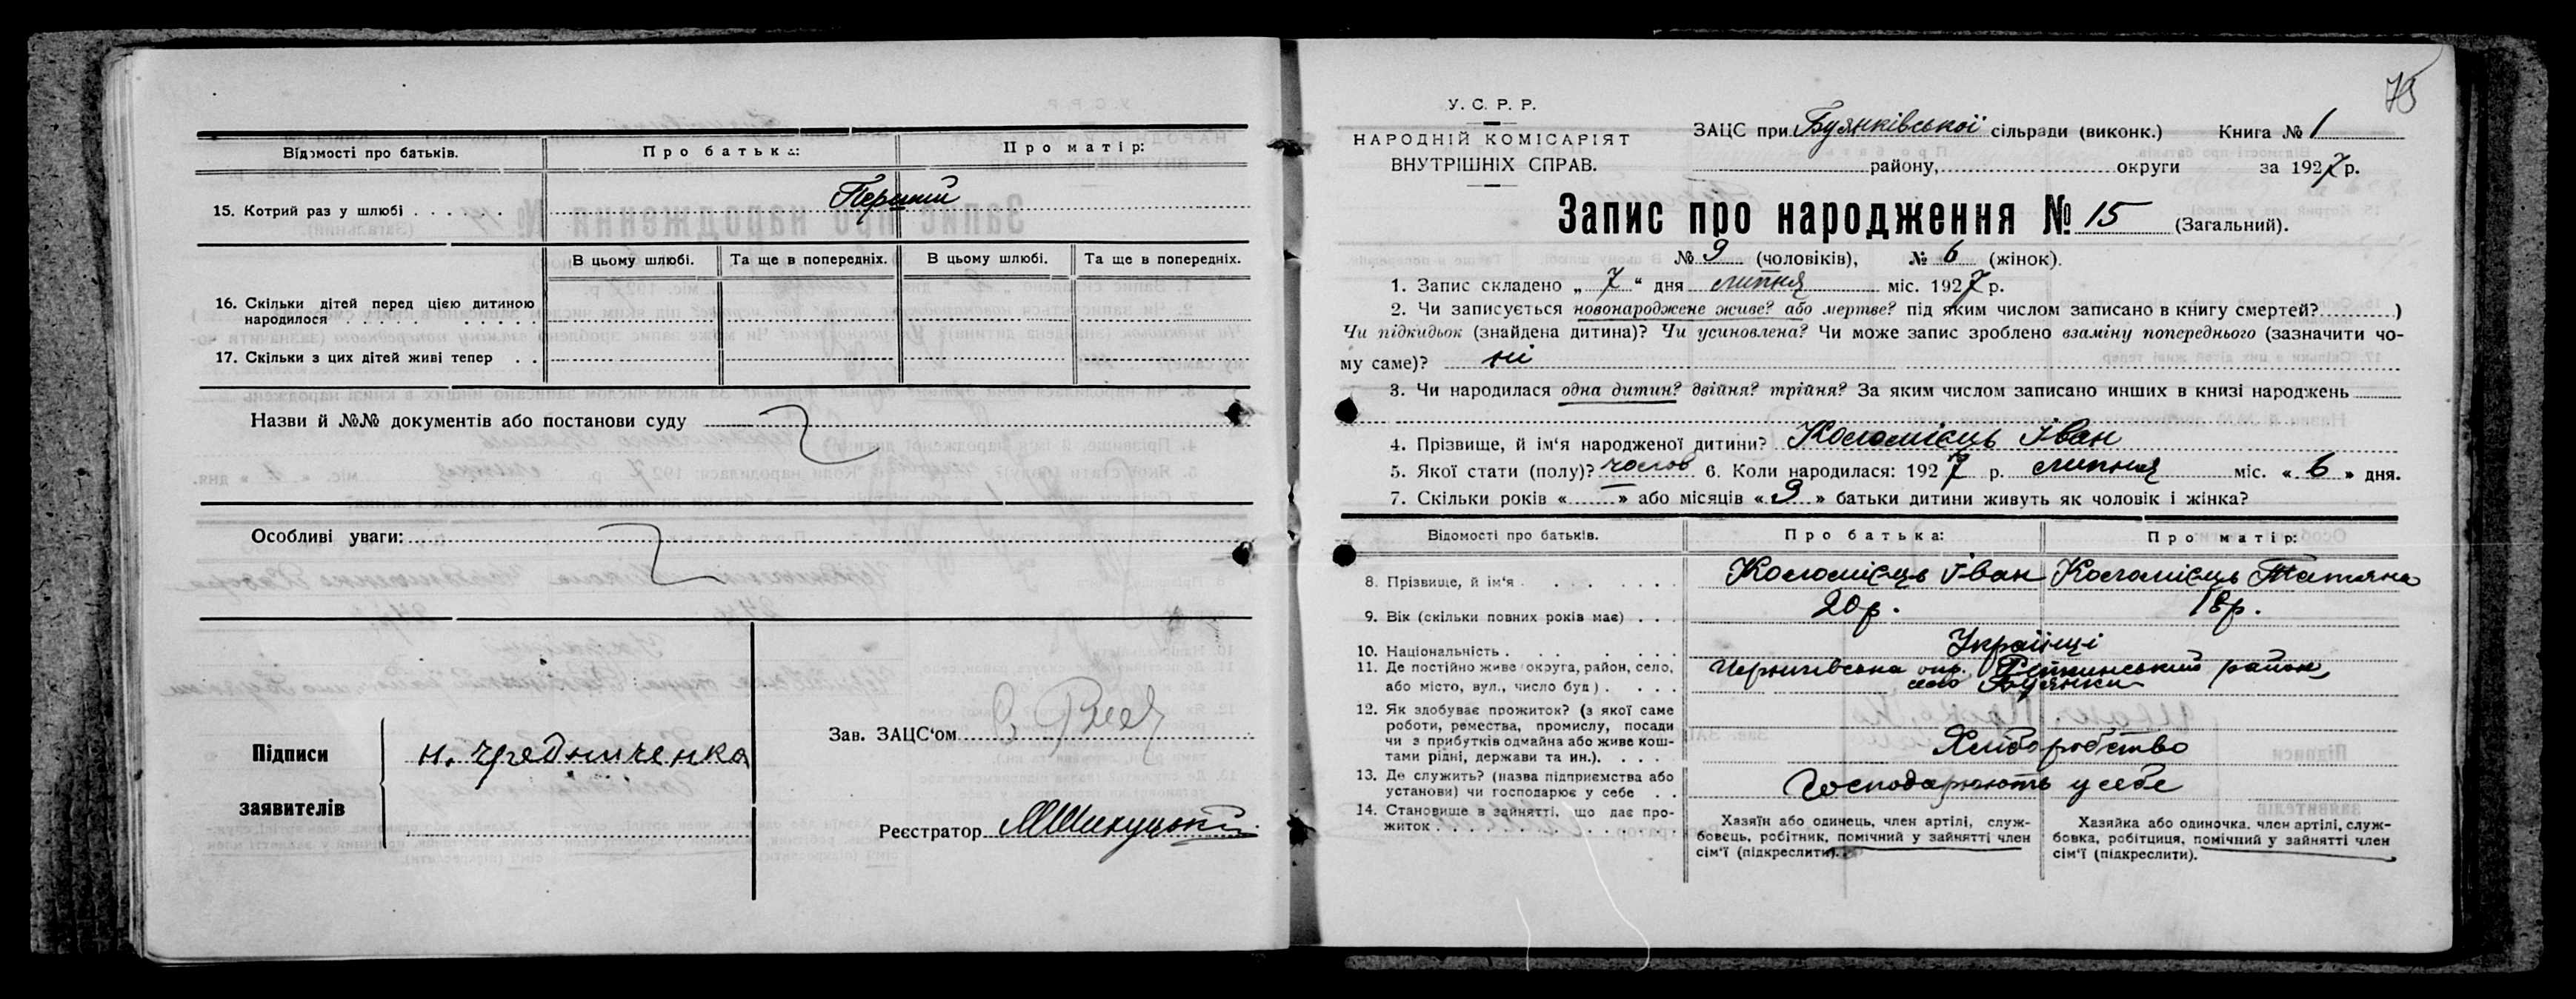 Відомості про батьків. Про батька: Про матір:
15. Котрий раз у шлюбі . . . . . . Перший
В цьому шлюбі. Та ще в попередніх. В цьому шлюбі. Та ще в попередніх.
16. Скільки дітей перед цією дитиною
народилося . . . . . . . . . .
17. Скільки з цих дітей живі тепер . .
Назви й №№ документів або постанови суду
Особливі уваги:
Підписи
заявителів
н. чредниченко
Зав. ЗАЦС‘ом
Реєстратор
75
У. С. Р. Р.
НАРОДНІЙ КОМІСАРІЯТ
ВНУТРІШНІХ СПРАВ.
ЗАЦС при Буянківської сільради (виконк.) Книга № 1
району, округи за 1927 р.
Запис про народження № 15 (Загальний).
№ 9 (чоловіків), № 6 (жінок).
1. Запис складено „ 7 “ дня липня міс. 1927 р.
2. Чи записується новонароджене живе? або мертве? під яким числом записано в книгу смертей? )
Чи підкидьок (знайдена дитина)? Чи усиновлена? Чи може запис зроблено взаміну попереднього (зазначити чо-
му саме)? ні
3. Чи народилася одна дитин? двійня? трійня? За яким числом записано инших в книзі народжень
4. Прізвище, й ім‘я народженої дитини? Коломієць Іван
5. Якої стати (полу)? чолов 6. Коли народилася: 1927 р. липня міс. « 6 » дня.
7. Скільки років « — » або місяців « 9 » батьки дитини живуть як чоловік і жінка?
Відомості про батьків. Про батька: Про матір:
8. Прізвище, й ім‘я . . . . . Коломієць Іван Коломієць Татяна
9. Вік (скільки повних років має) . . . 20 р. 18 р.
10. Національність . . . . . . Українці
11. Де постійно живе (округа, район, село, Чернигівська окр. Ріпкинський район,
або місто, вул., число буд.) . . . . село Буянки
12. Як здобуває прожиток? (з якої саме
роботи, ремества, промислу, посади
чи з прибутків одмайна або живе кош-
тами рідні, держави та ин.). . . . . Хліборобство
13. Де служить? (назва підприємства або
установи) чи господарює у себе . . Господарюють у себе
14. Становище в зайнятті, що дає про-
житок . . . . . . . . . . . . .
Хазяїн або одинець, член артілі, служ-
бовець, робітник, помічний у зайнятті член
сім‘ї (підкреслити).
Хазяйка або одиночка, член артілі, служ-
бовка, робітниця, помічний у зайнятті член
сім‘ї (підкреслити).